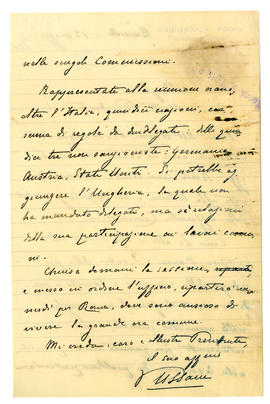 nelle singole Commissioni.
Rappresentate alla riunione erano,
oltre l'Italia, quindici nazioni, cia
scuna di regola da due delegati: delle quin
dici tre non sanzioniste: Germania
Austria, Stati Uniti. Si potrebbe ag
giungere l'Ungheria, la quale non
ha mandato delegati, ma relazioni
della sua partecipazione ai lavori comu
ni.
Chiusa domani la sessione,
e messo in ordine l'ufficio, ripartirò
per Roma, dove sono ansioso di
vivere la grande ora comune.
Mi creda, caro e illustre Presidente,
il suo aff
Ussani